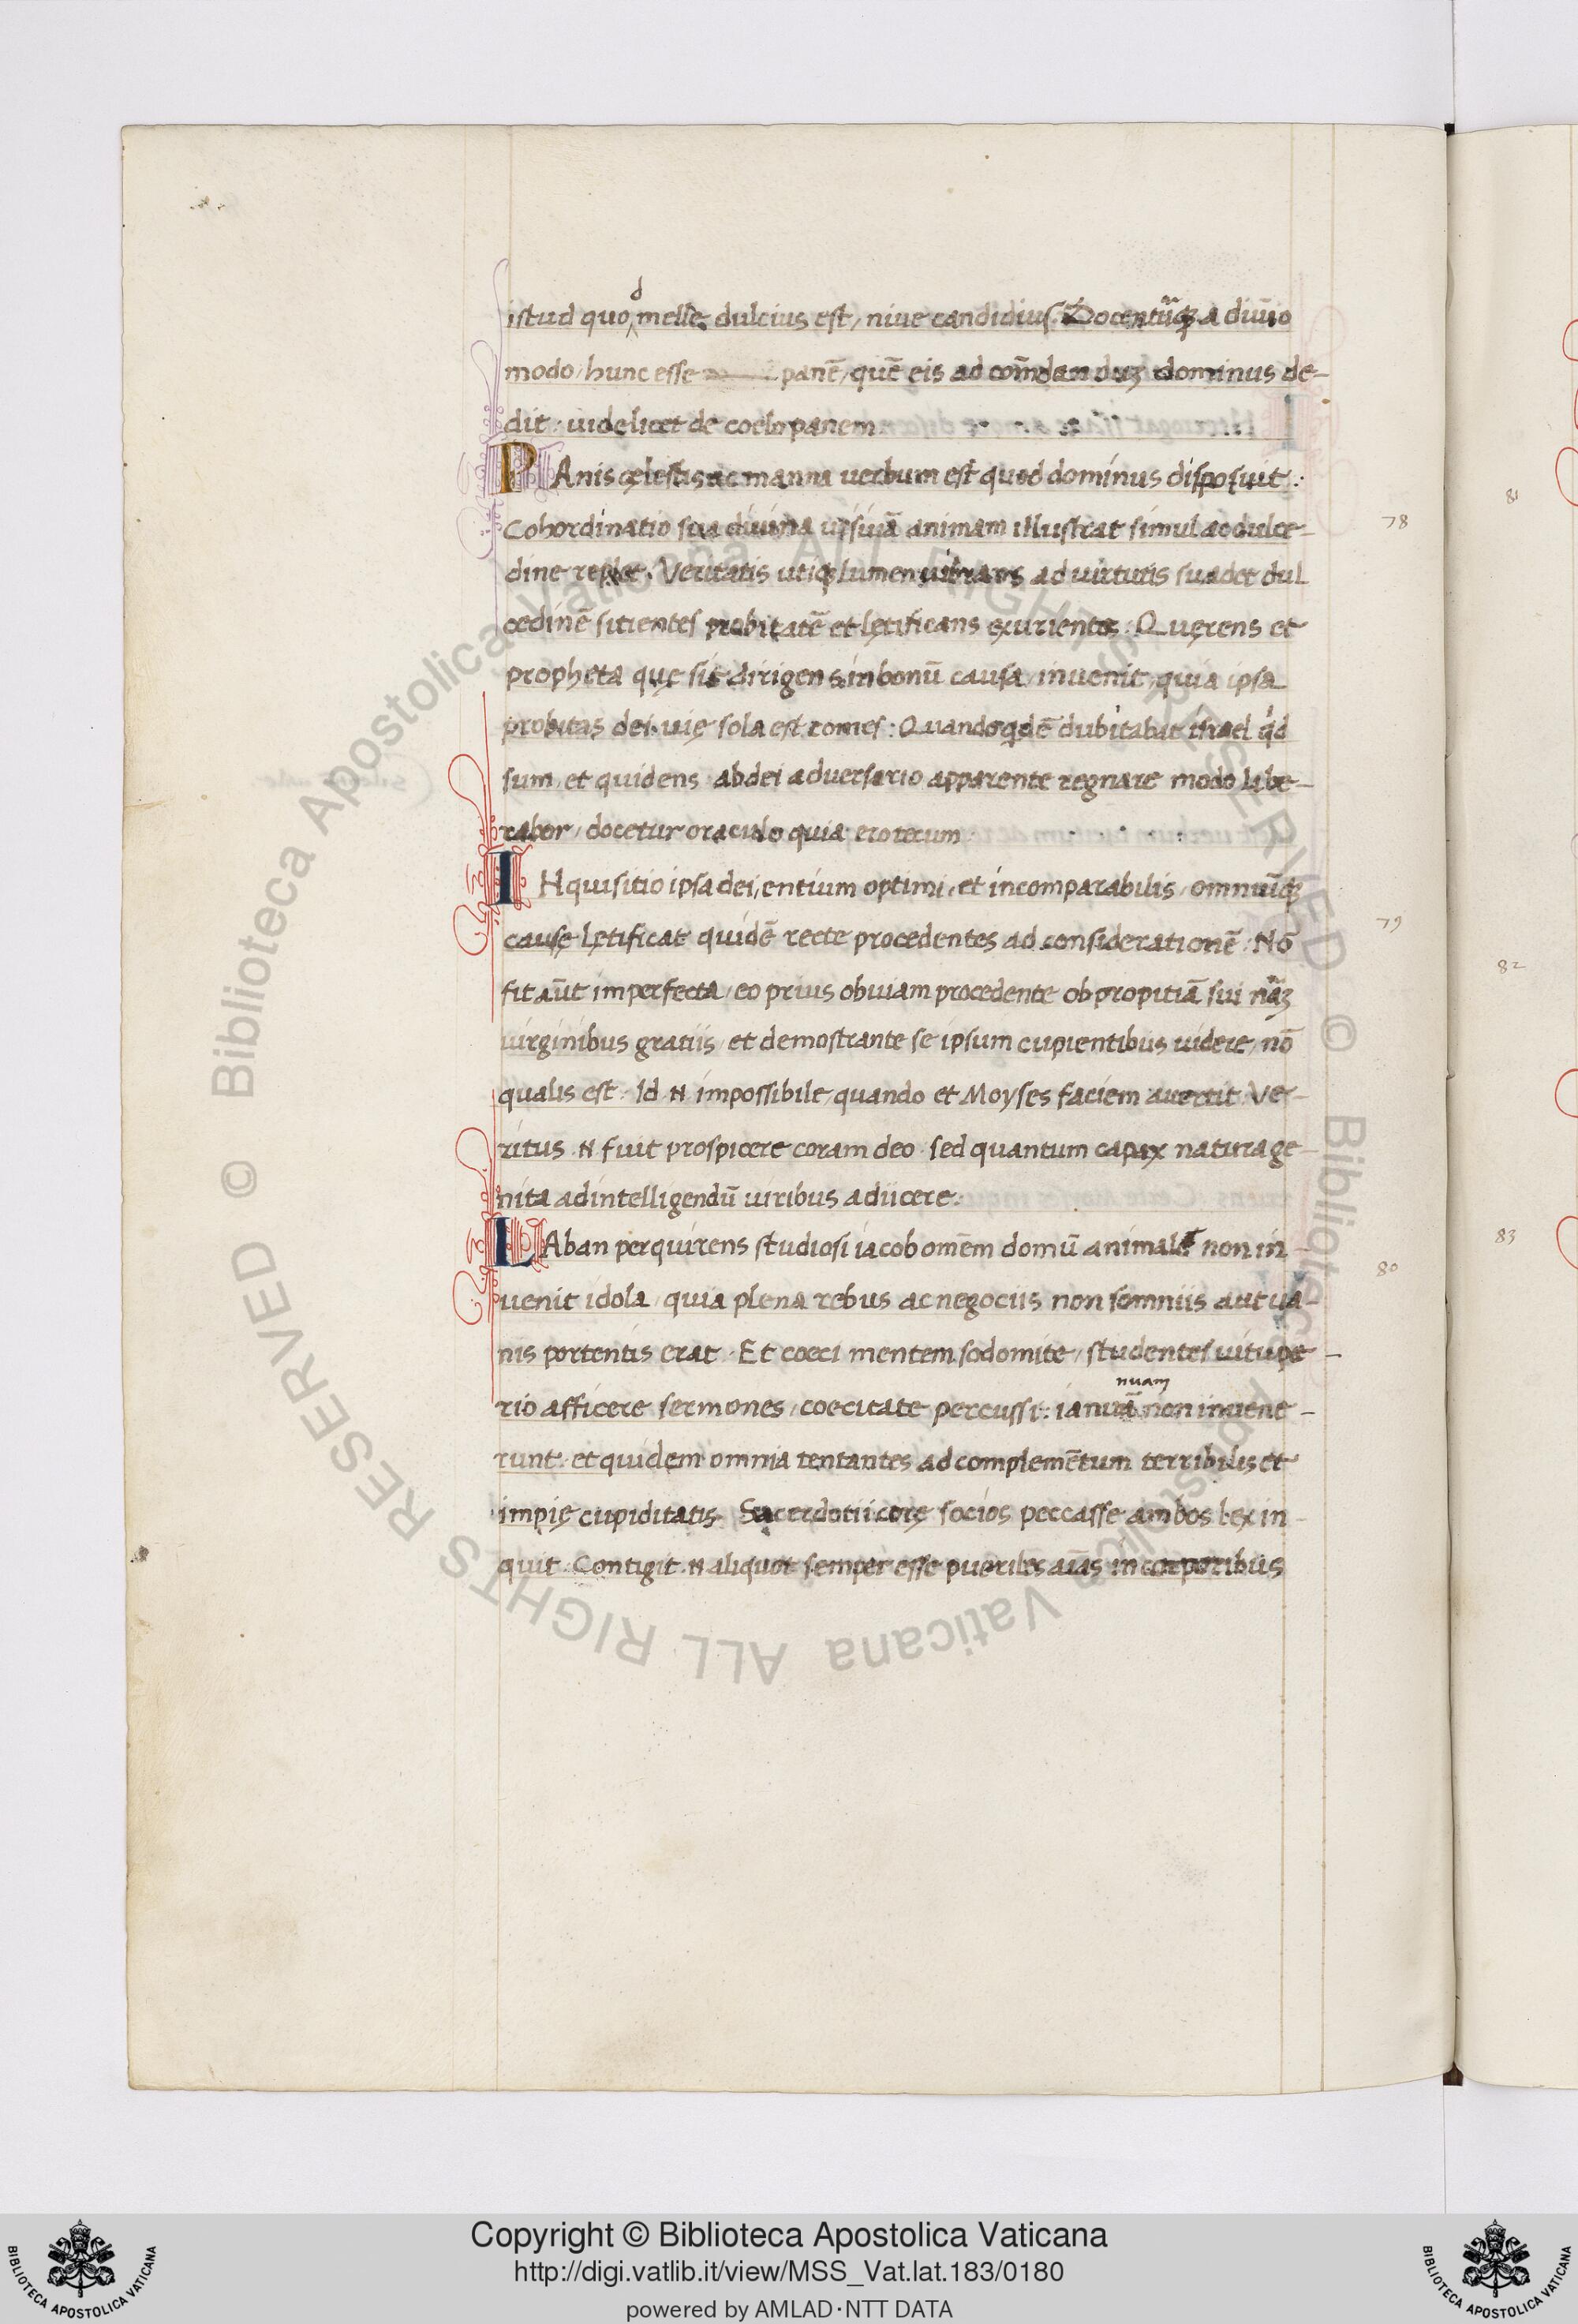 istud quo melle dulcius est / niue candidius. Docentūq; a diuīo
d
modo / hunc esse panē / quē eis ad com̄danduȝ dominus de-
dit: uidelicet de coelo panem.
PAnis cęlestis ac manna uerbum est quod dominus disposuit:
Cohordinatio sua diuina animam illustrat simul ac dulce-
dine replet. Veritatis utiq; lumen uibrans ad uirtutis suadet dul
cedinē sitientes probitatē et lętificans exurientes: Quęrens et
propheta quę sit dirigens in bonū causa / inuenit / quia ipsa
probitas dei uię sola est comes: Quandoqdē dubitabat israel qd
sum / et quidens ab dei aduersario apparente regnare modo labe-
rabor / docetur oraculo quia ero tecum
INquisitio ipsa dei, entium optimi, et incomparabilis, omniūq;
causę lętificat quidē recte procedentes ad considerationē: Nō
fit aūt imperfecta / eo prius obuiam procedente ob propitiā sui
uirginibus gratiis / et demostrante se ipsum cupientibus uidere / nō
qualis est: Id N impossibile / quando et Moyses faciem auertit: Ve-
ritus N fuit prospicere coram deo sed quantum capax natura ge-
nita ad intelligendū uiribus adiicere:
LAban perquirens studiosi iacob omēm domū animalē non in-
uenit idola / quia plena rebus ac negociis non somniis aut ua-
nis portentis erat. Et coeci mentem sodomite / studentes uitupe-
nuam
rio afficere sermones / coecitate percussi: ianuā non inuene-
runt: et quidem omnia tentantes ad complemētum terribilis et
impię cupiditatis. Sacerdotii corę socios peccasse ambos lex in-
quit: Contigit N aliquot semper esse pueriles aīas in corporibus
78
79
80
81
82
83
© Biblioteca Apostolica Vaticana ALL RIGHTS RESERVED © Biblioteca Apostolica Vaticana ALL RIGHTS RESERVED
Copyright © Biblioteca Apostolica Vaticana
http://digi.vatlib.it/view/MSS_Vat.lat.183/0180
powered by AMLAD·NTT DATA
BIBLIOTECA APOSTOLICA VATICANA
BIBLIOTECA APOSTOLICA VATICANA